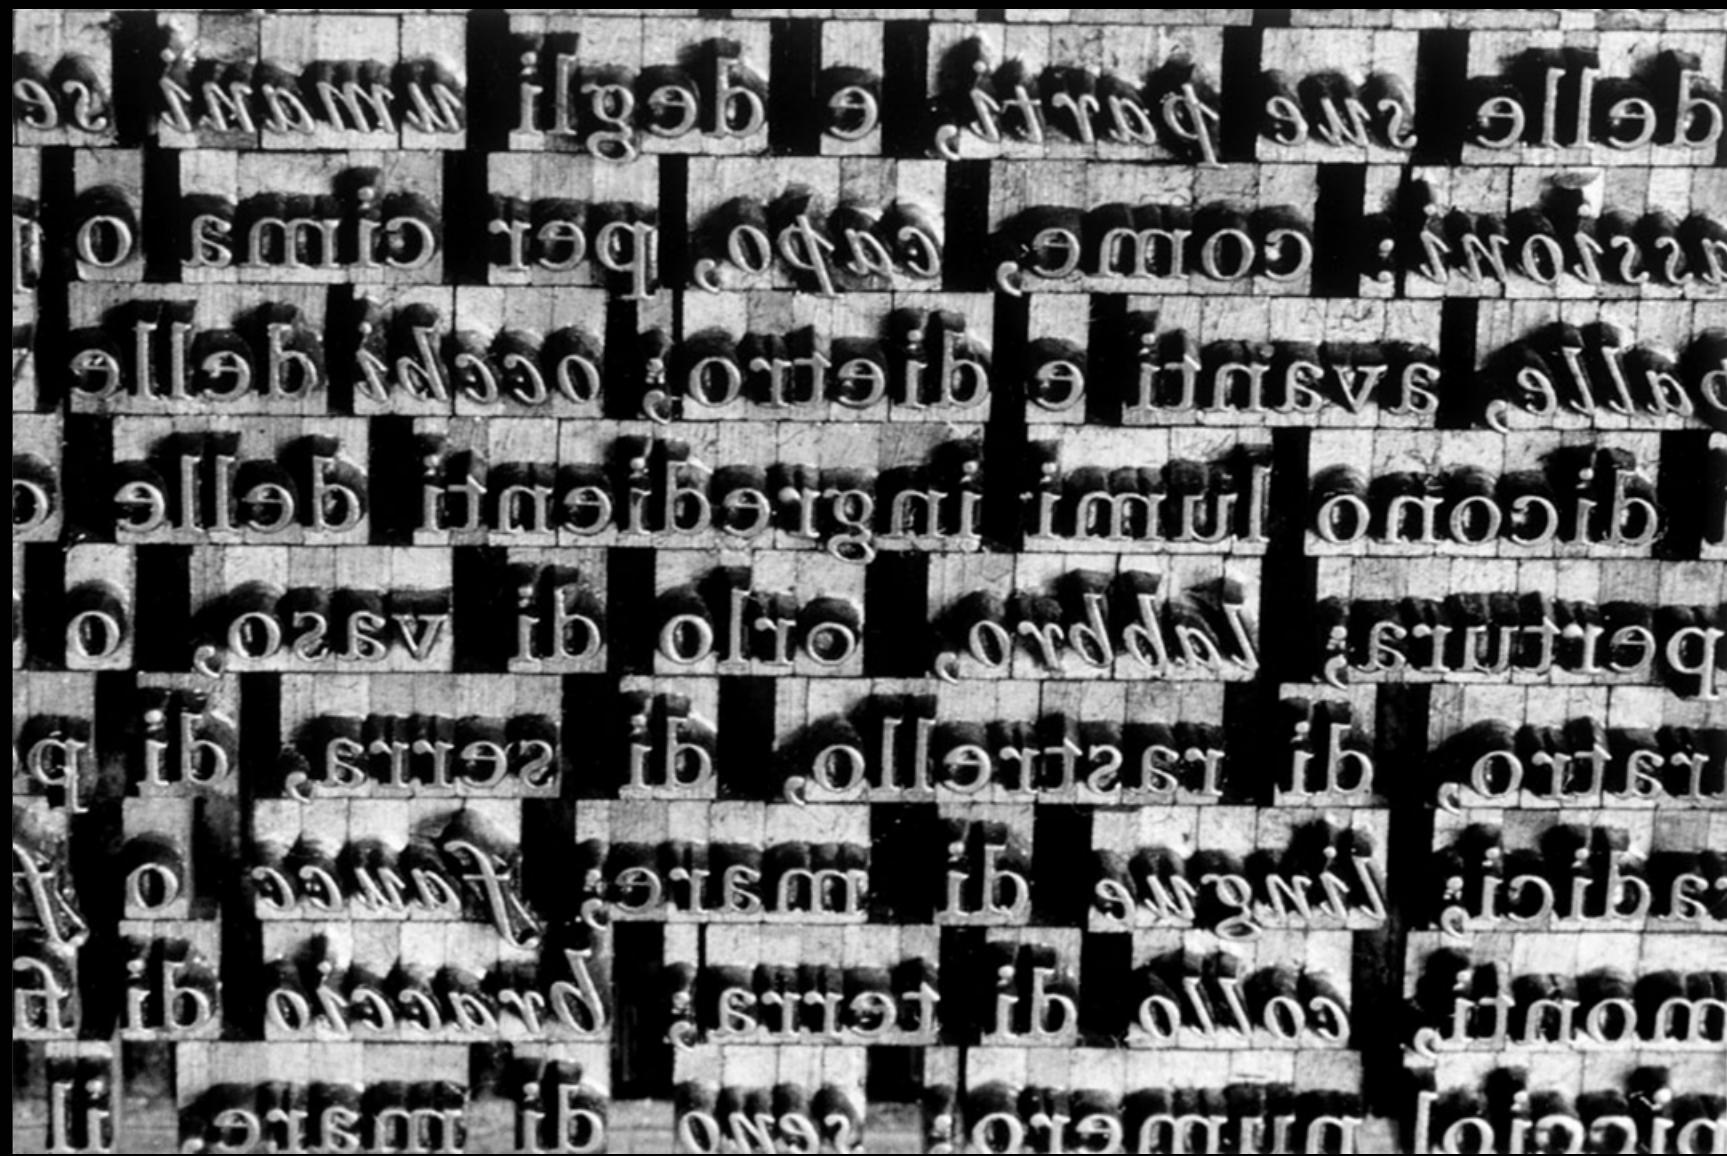 delle sue parti, e degli umani se
assioni: come, capo, per cima o p
palle, avanti e dietro; occhi delle
dicono lumi ingredienti delle c
pertura; labbro, orlo di vaso, o
ratro, di rastrello, di serra, di p
radici; lingue di mare; fauce o f
monti, collo di terra; braccio di fi
picciol numero; seno di mare, il